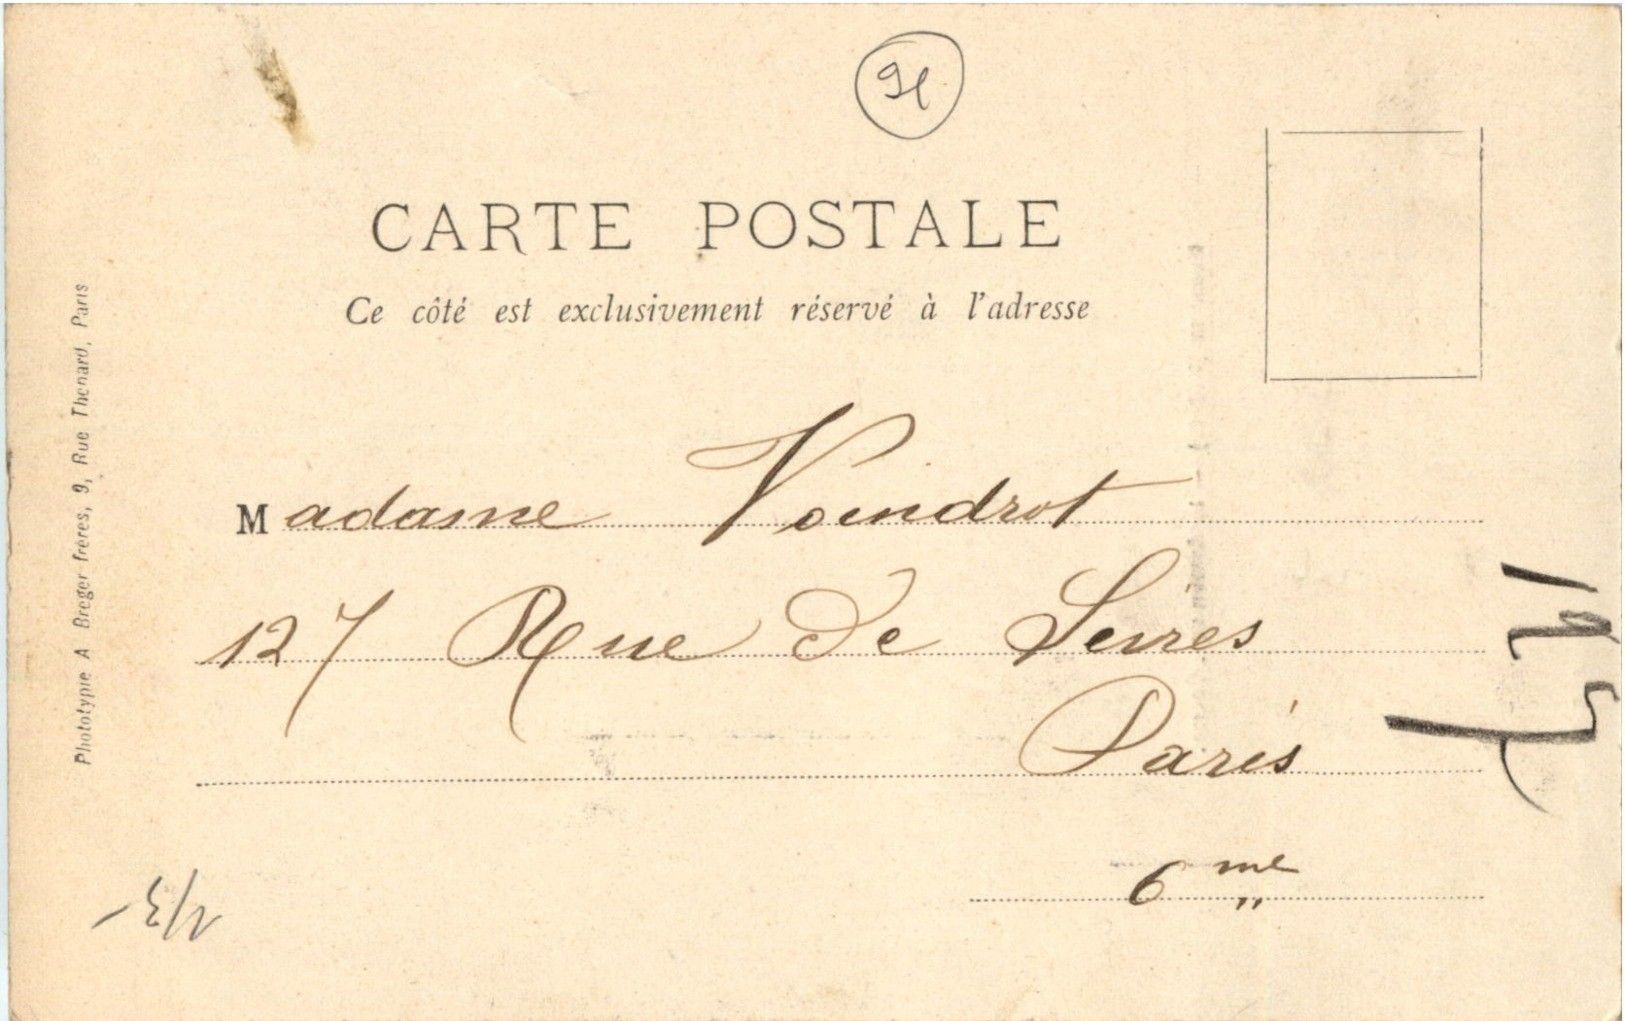 91
CARTE POSTALE
Ce côté est exclusivement réservé à l'adresse
Madame Voindrot
127 Rue de Sèvres
Paris
6 me
Phototypie A Breger frères, 9, Rue Thenard, Paris